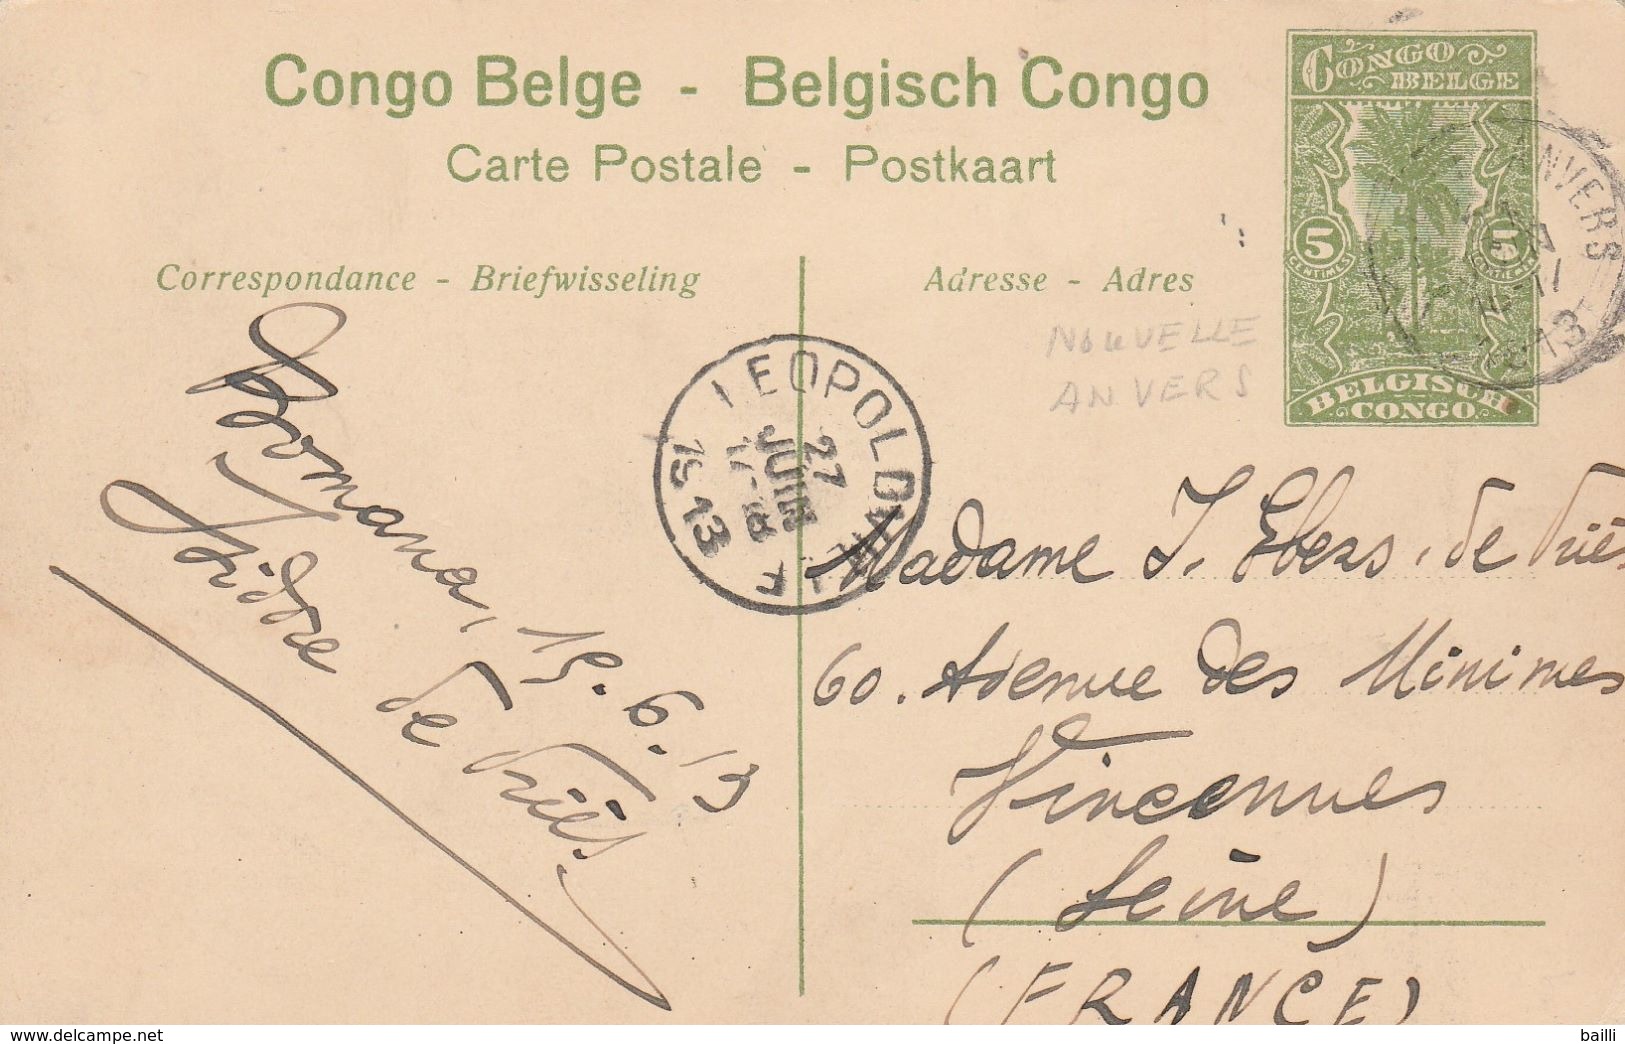 Congo Belge - Belgisch Congo
Carte Postale - Postkaart
CONGO
BELGE
5 5
CENTIMES CENTIMES
BELGISCH
CONGO
ANVERS
Correspondance - Briefwisseling
Adresse - Adres
NOUVELLE
ANVERS
LEOPOLDVILLE
27
JUIN
17-18
1913
Bomana, 15.6.13
Isidore de Vriës.
Madame J. Ebers. de Vriës
60. Avenue des Minimes
Vincennes
(Seine)
(FRANCE)
delcampe.net
bailli